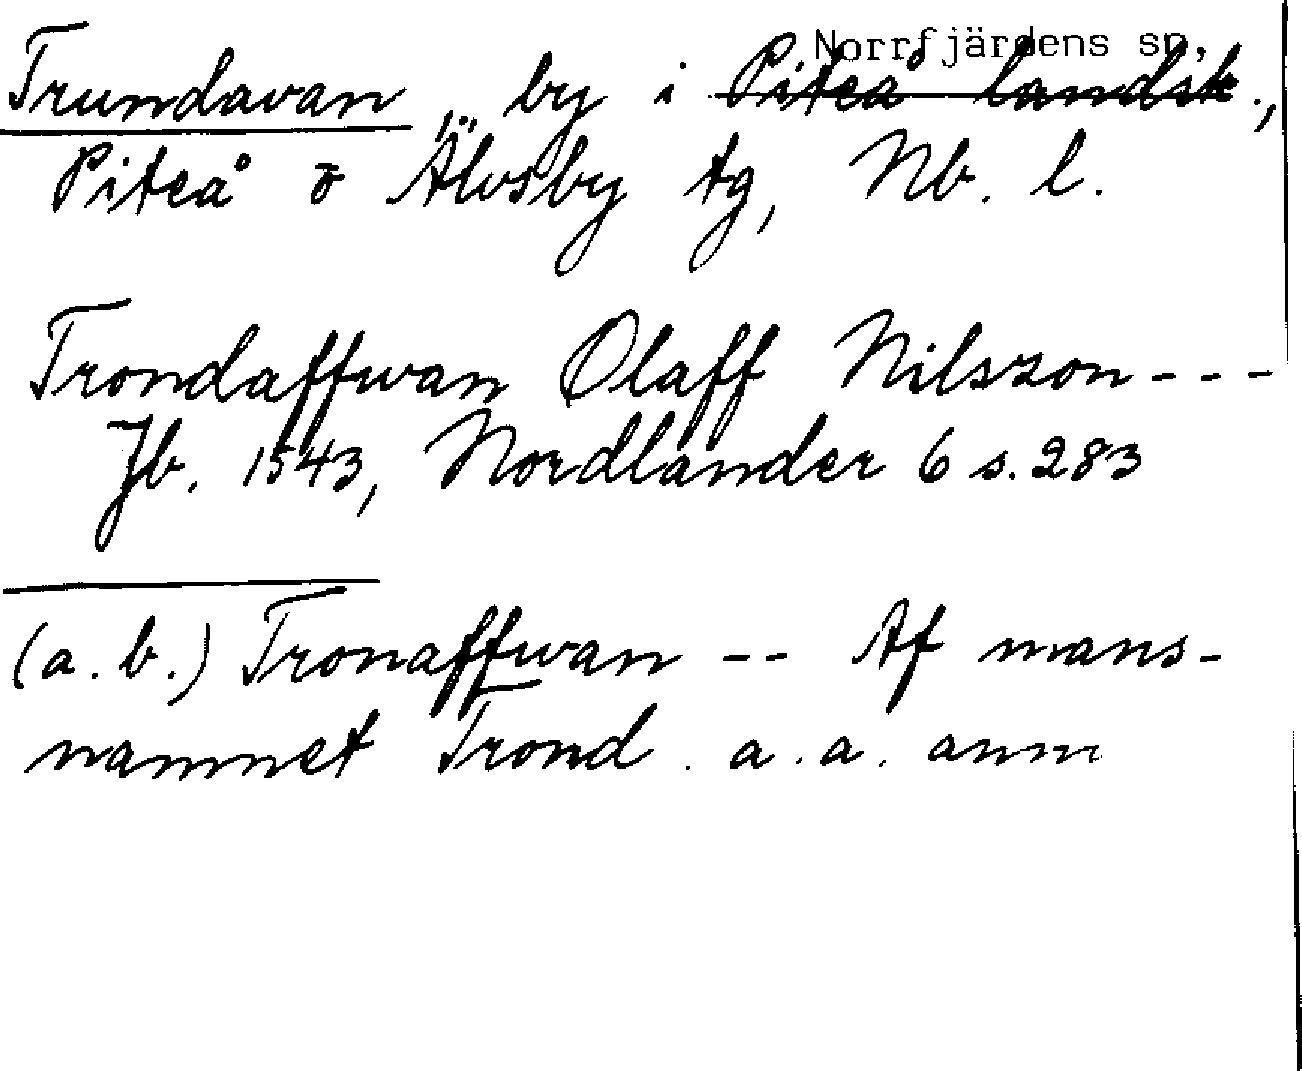 Norrfjärdens sn,
Trundavan, by i Piteå landsk.,
Piteå o Älvsby tg, Nb. l.
Trondaffwan Olaff Nilszon---
Jb. 1543, Nordlander 6 s. 283
(a. b.) Tronaffwan -- Af mans-
namnet Trond. a. a. anm